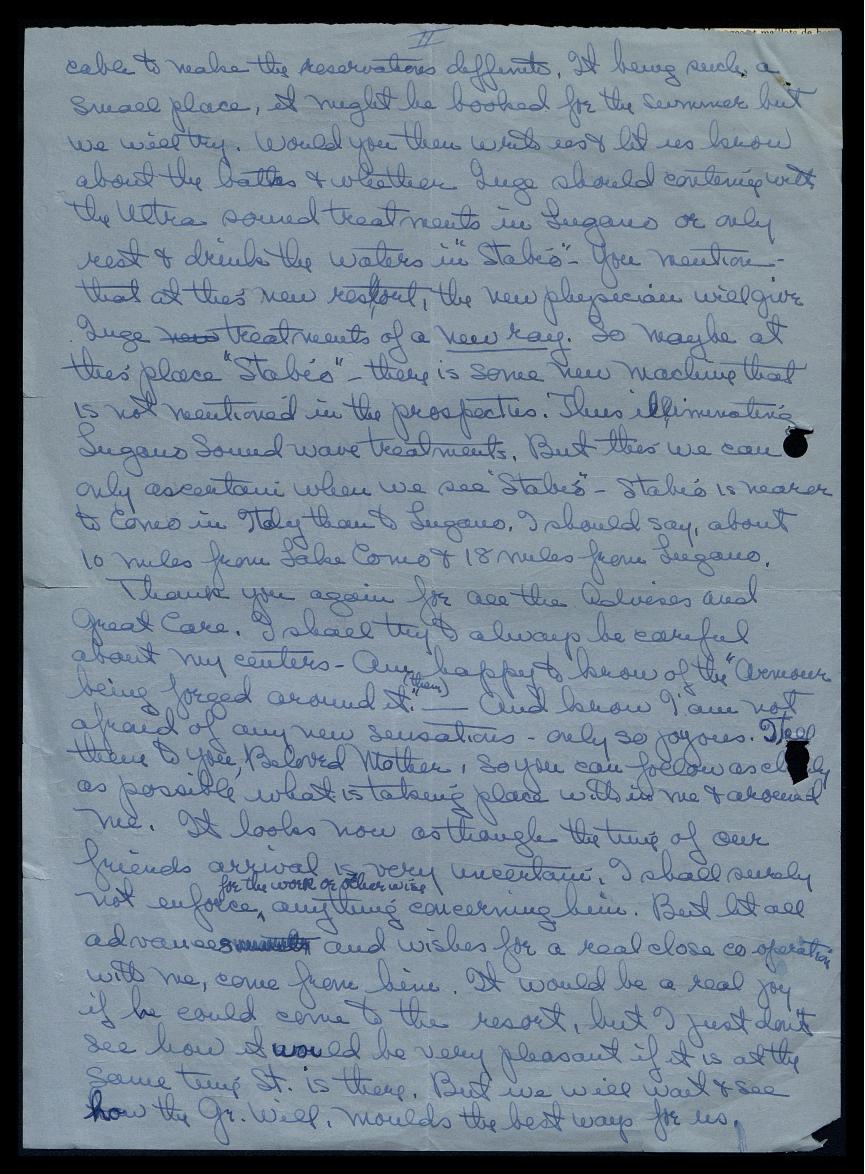 II
cable to make the reservations deffinite. It being such a
small place, it might be booked for the summer but
we will try. Would you then write us & let us know
about the battes & whether Inge should contenie with
the Ultra sound treatments in Lugano or only
rest & drink the waters in "Stabio" - You mention -
that at this new resort, the new physician will give
Inge new treatments of a new ray. So maybe at
this place "Stabio" - there is some new machine that
is not mentioned in the prospectus. Thus illiminating
Lugano Sound wave treatments. But this we can
only ascertain when we see "Stabio" - Stabio is nearer
to Como in Italy than to Lugano. I should say, about
10 miles from Lake Como & 18 miles from Lugano.
Thank you again for all the Advises and
Great Care. I shall try to always be careful
about my centers - Am happy to know of the "Armour
being forged around it." (them) — And know I am not
afraid of any new sensations - only so joyous. I tell
them to you, Beloved Mother, so you can follow as closely
as possible what is taking place with in me & around
me. It looks now as though the time of our
friends arrival is very uncertain. I shall surely
for the work or otherwise
not enforce, anything concerning him. But let all
advances and wishes for a real close co operation
with me, come from him. It would be a real joy
if he could come to the resort, but I just don't
see how it would be very pleasant if it is at the
same time St. is there. But we will wait & see
how the Gr. Will. moulds the best ways for us.